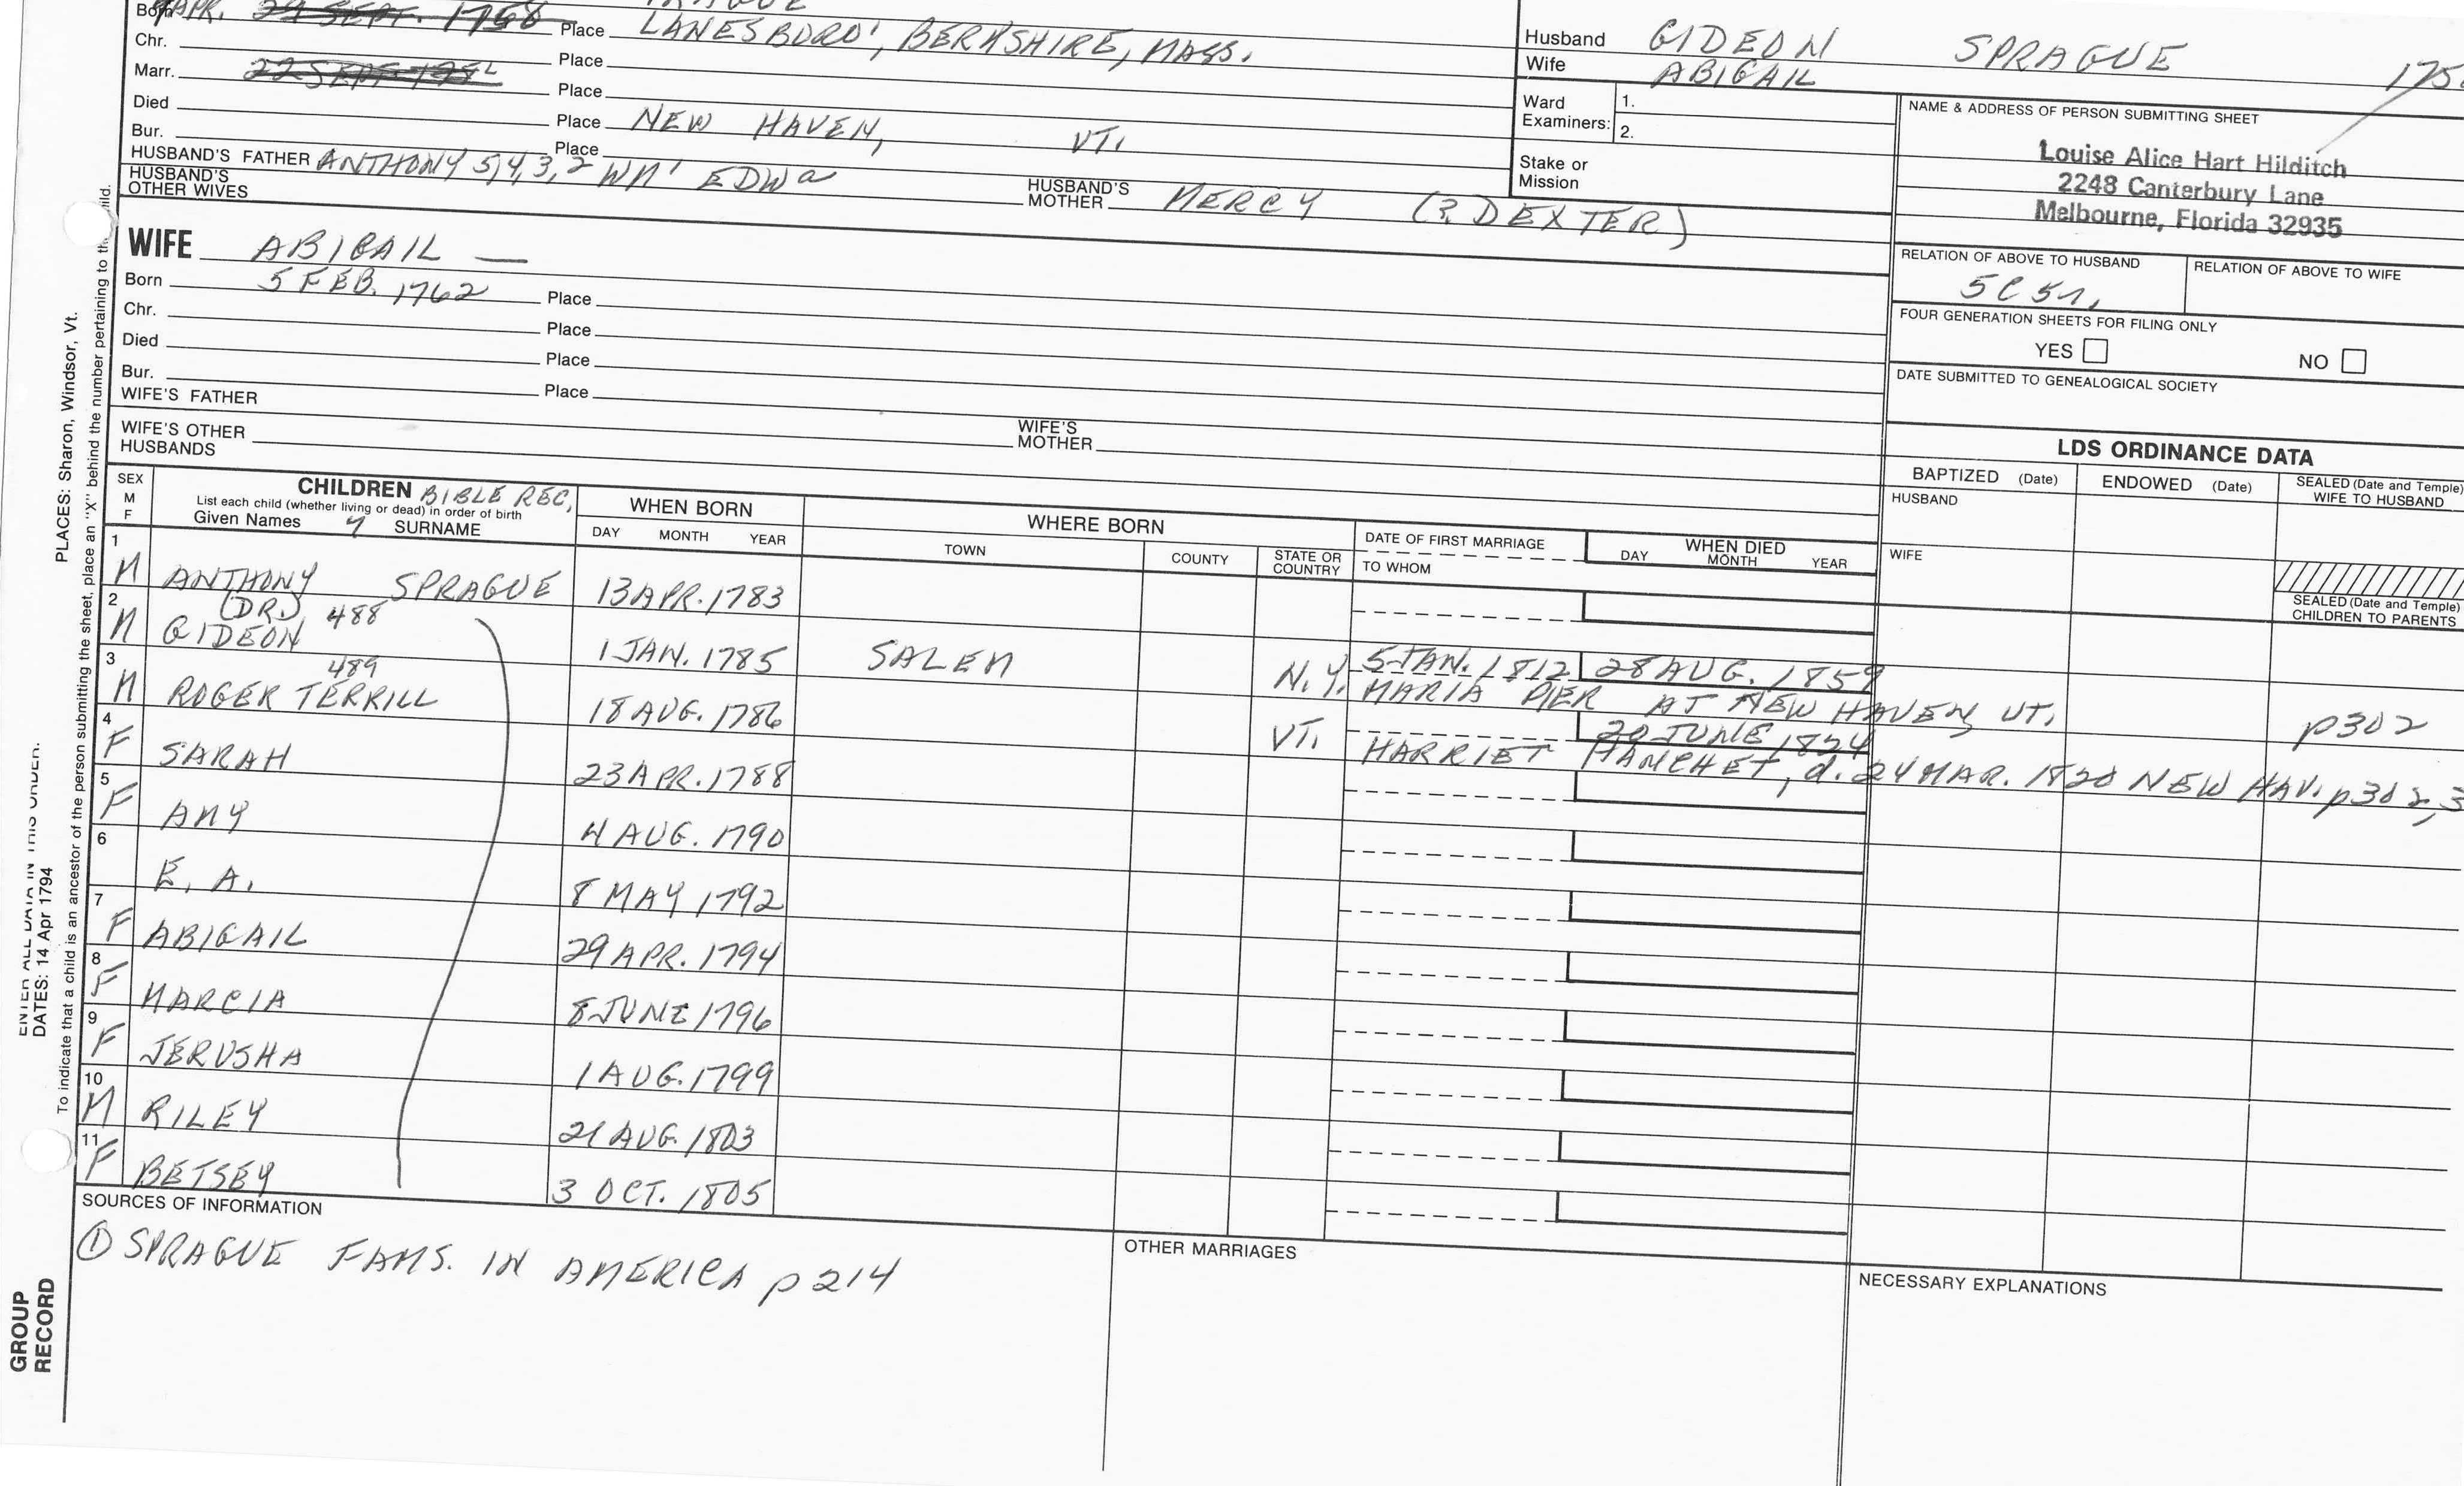 Born APR. 29 SEPT. 1758 Place LANESBORO', BERKSHIRE, MASS.
Chr. Place
Marr. 22 SEPT. Place
Died Place NEW HAVEN, VT.
Bur. Place
HUSBAND'S FATHER ANTHONY 5,4,3,2 WM' EDWa HUSBAND'S MOTHER MERCY (? DEXTER)
HUSBAND'S OTHER WIVES
Husband GIDEON SPRAGUE
Wife ABIGAIL
Ward Examiners: 1.
2.
Stake or Mission
NAME & ADDRESS OF PERSON SUBMITTING SHEET
Louise Alice Hart Hilditch
2248 Canterbury Lane
Melbourne, Florida 32935
RELATION OF ABOVE TO HUSBAND RELATION OF ABOVE TO WIFE
5C5r,
FOUR GENERATION SHEETS FOR FILING ONLY
YES NO
DATE SUBMITTED TO GENEALOGICAL SOCIETY
WIFE ABIGAIL —
Born 5 FEB. 1762 Place
Chr. Place
Died Place
Bur. Place
WIFE'S FATHER WIFE'S MOTHER
WIFE'S OTHER HUSBANDS
LDS ORDINANCE DATA
BAPTIZED (Date) ENDOWED (Date) SEALED (Date and Temple) WIFE TO HUSBAND
HUSBAND
WIFE
SEALED (Date and Temple) CHILDREN TO PARENTS
SEX M F
CHILDREN BIBLE REC.
List each child (whether living or dead) in order of birth
Given Names SURNAME
WHEN BORN
DAY MONTH YEAR
WHERE BORN
TOWN COUNTY STATE OR COUNTRY
DATE OF FIRST MARRIAGE
TO WHOM
WHEN DIED
DAY MONTH YEAR
1 M ANTHONY SPRAGUE 13 APR. 1783
2 M (DR.) GIDEON 488 1 JAN. 1785 SALEM N.Y. 5 JAN. 1812 28 AUG. 1859
MARIA PIER AT NEW HAVEN, VT. p302
3 M ROGER TERRILL 489 18 AUG. 1786 VT. 20 JUNE 1824
HARRIET HANCHET, d. 24 MAR. 1820 NEW HAV. p302,3
4 F SARAH 23 APR. 1788
5 F AMY 4 AUG. 1790
6 E. A. 8 MAY 1792
7 F ABIGAIL 29 APR. 1794
8 F MARCIA 8 JUNE 1796
9 F JERUSHA 1 AUG. 1799
10 M RILEY 21 AUG. 1803
11 F BETSEY 3 OCT. 1805
SOURCES OF INFORMATION
① SPRAGUE FAMS. IN AMERICA p 214
OTHER MARRIAGES
NECESSARY EXPLANATIONS
PLACES: Sharon, Windsor, Vt.
To indicate that a child is an ancestor of the person submitting the sheet, place an "X" behind the number pertaining to the child.
ENTER ALL DATA IN THIS ORDER:
DATES: 14 Apr 1794
GROUP
RECORD